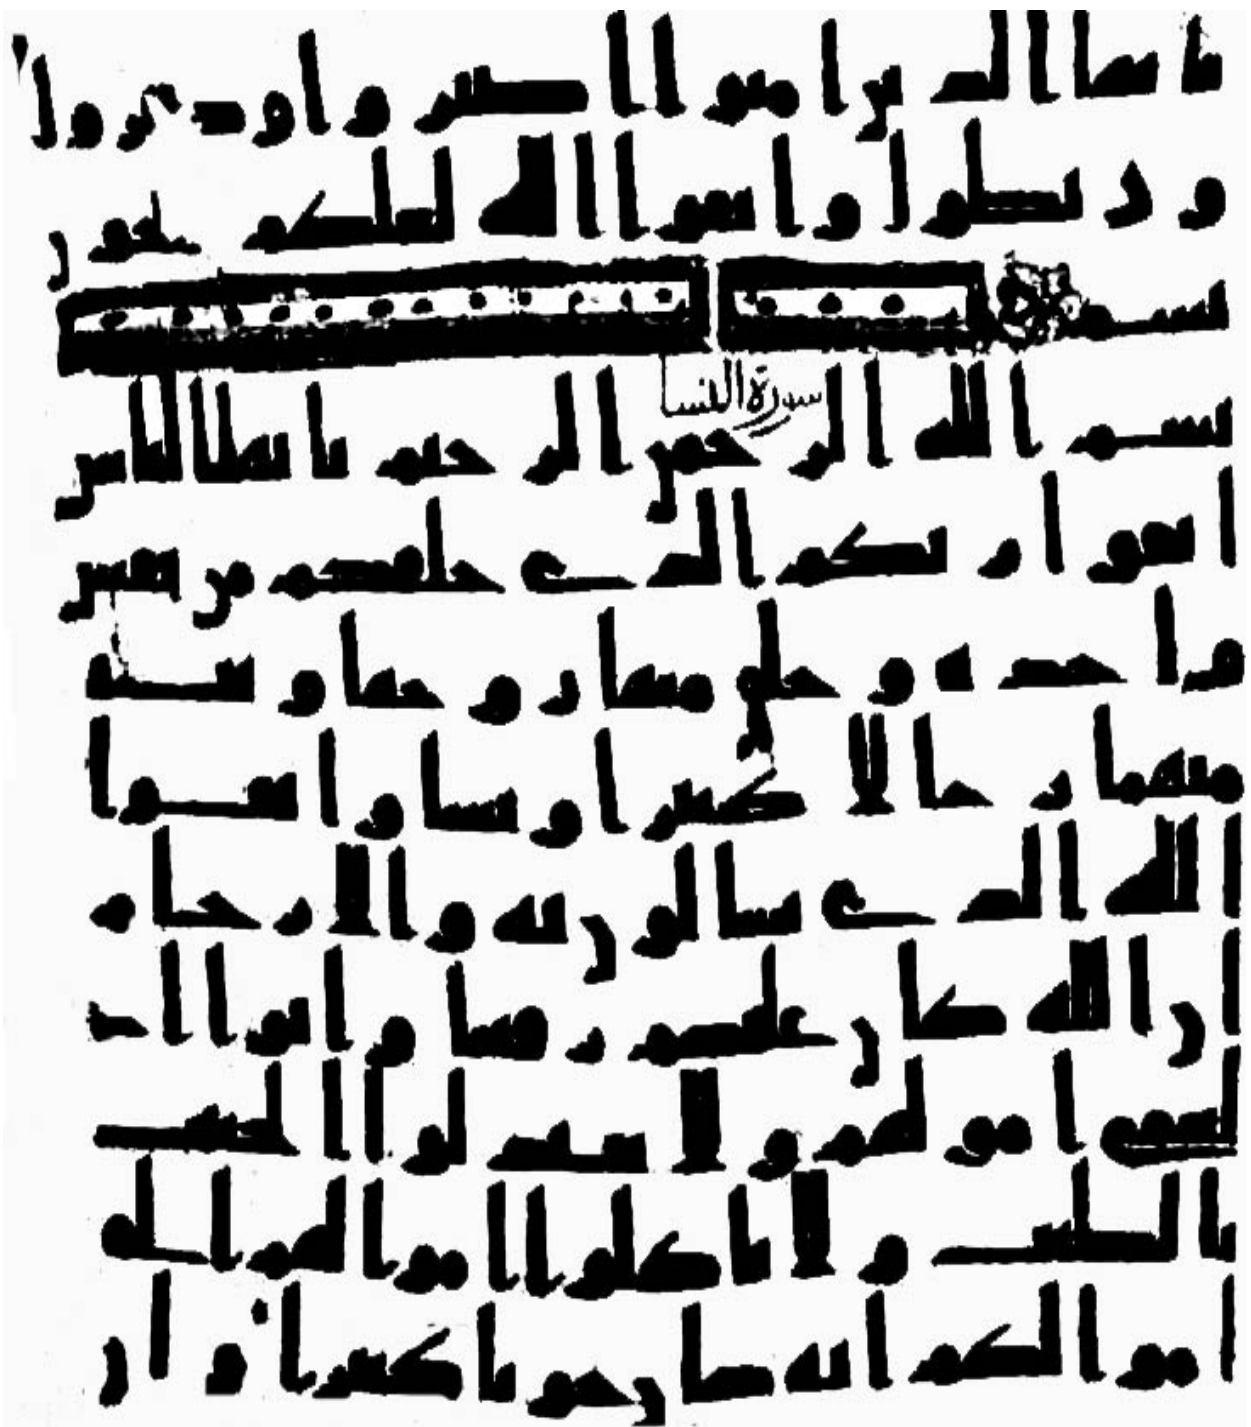 يايها الذين امنوا اصبروا وصبروا
وربطوا واتقوا الله لعلكم تفلحون
بسم
سورة النسا
بسم الله الرحمن الرحيم يايها الناس
اتقوا ربكم الذي خلقكم من نفس
واحده وخلق منها زوجها وبث
منهما رجالا كثيرا ونسا واتقوا
الله الذي تسالون به والارحام
ان الله كان عليكم رقيبا واتوا ا
ليتمى اموالهم ولا تتبدلوا الخبيث
بالطيب ولا تاكلوا اموالهم الى
اموالكم انه كان حوبا كبيرا وان